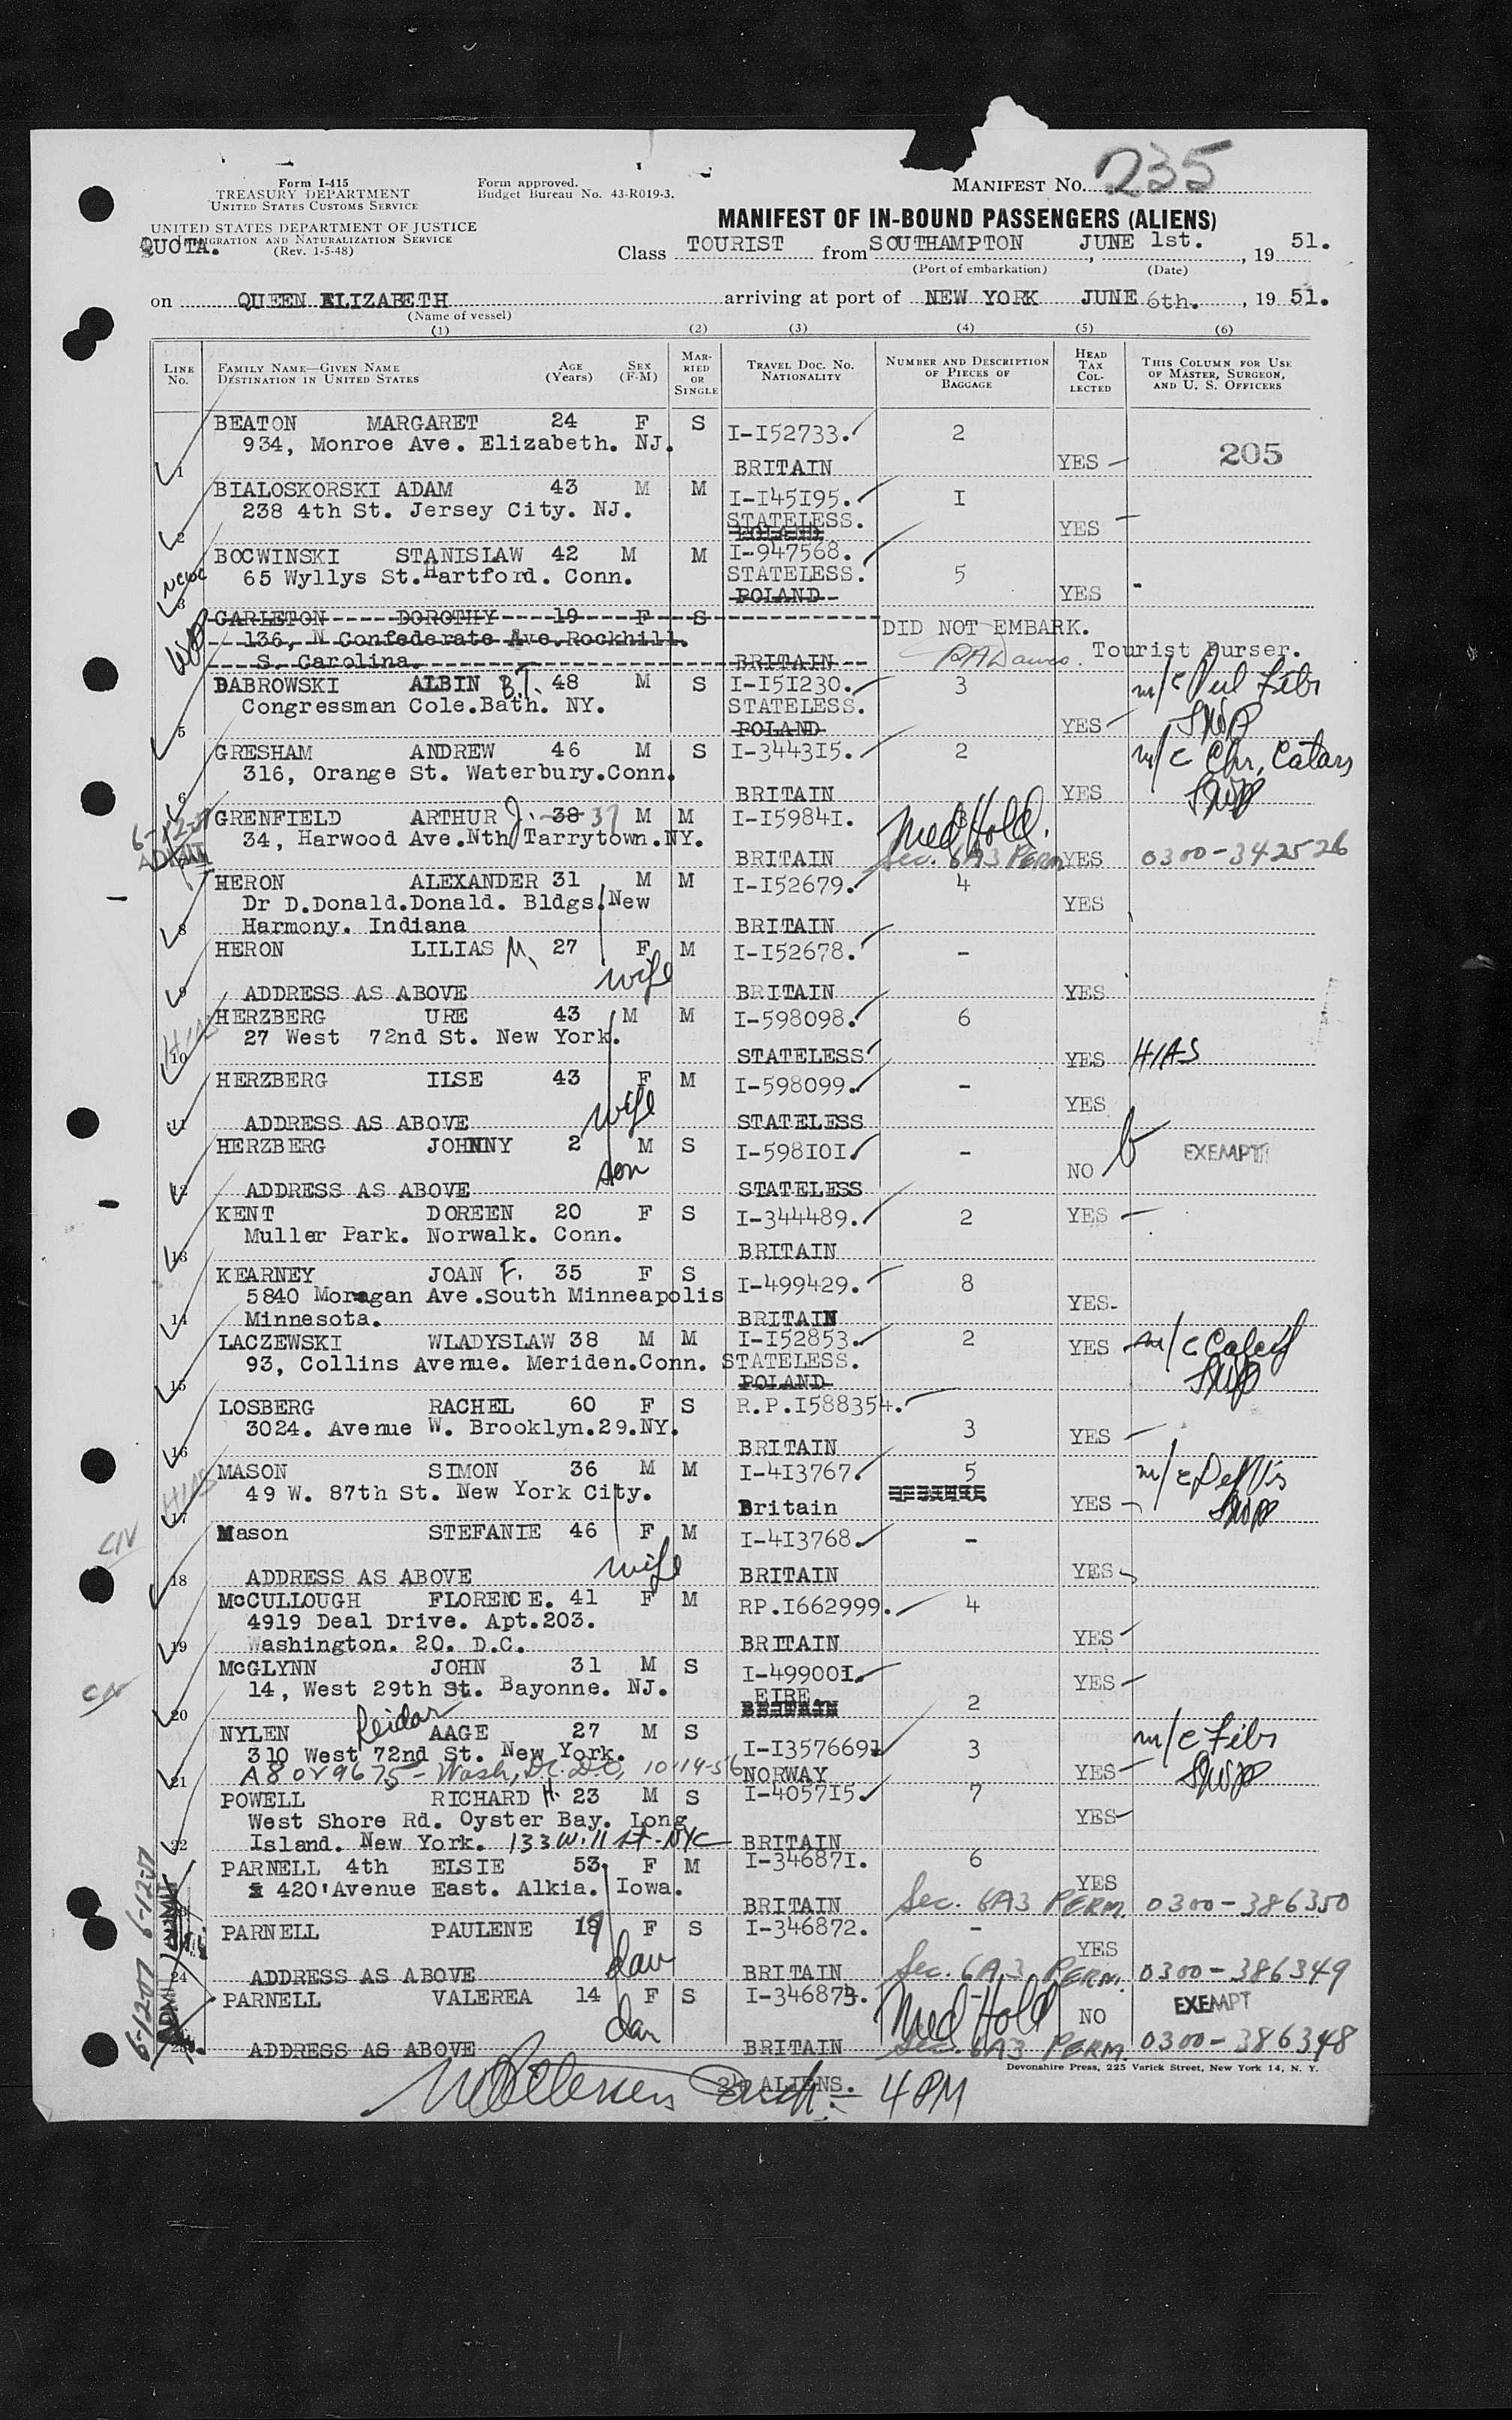 Form I-415
TREASURY DEPARTMENT
UNITED STATES CUSTOMS SERVICE
UNITED STATES DEPARTMENT OF JUSTICE
IMMIGRATION AND NATURALIZATION SERVICE
(Rev. 1-5-48)
QUOTA.
Form approved.
Budget Bureau No. 43-R019-3.
MANIFEST No. 235
MANIFEST OF IN-BOUND PASSENGERS (ALIENS)
Class TOURIST from SOUTHAMPTON JUNE 1st., 19 51.
(Port of embarkation) (Date)
on QUEEN ELIZABETH arriving at port of NEW YORK JUNE 6th., 19 51.
(Name of vessel)
(1) (2) (3) (4) (5) (6)
LINE No. FAMILY NAME—GIVEN NAME DESTINATION IN UNITED STATES AGE (Years) SEX (F-M) MARRIED OR SINGLE TRAVEL DOC. No. NATIONALITY NUMBER AND DESCRIPTION OF PIECES OF BAGGAGE HEAD TAX COLLECTED THIS COLUMN FOR USE OF MASTER, SURGEON, AND U. S. OFFICERS
BEATON MARGARET 24 F S I-I52733. 2
934, Monroe Ave. Elizabeth. NJ.
1 BRITAIN YES 205
BIALOSKORSKI ADAM 43 M M I-I45I95. I
238 4th St. Jersey City. NJ. STATELESS.
2 POLAND YES
BOCWINSKI STANISLAW 42 M M I-947568.
65 Wyllys St. Hartford. Conn. STATELESS. 5
3 POLAND YES
CARLETON DOROTHY 19 F S
136, N Confederate Ave. Rockhill. DID NOT EMBARK.
S. Carolina. BRITAIN Tourist Purser.
DABROWSKI ALBIN B.T. 48 M S I-I5I230. 3
Congressman Cole. Bath. NY. STATELESS.
5 POLAND YES
GRESHAM ANDREW 46 M S I-3443I5. 2
316, Orange St. Waterbury. Conn.
6 BRITAIN YES
GRENFIELD ARTHUR J. 38 37 M M I-I5984I. Med Hold.
34, Harwood Ave. Nth Tarrytown. NY.
BRITAIN Sec. 6A3 PERM YES 0300-342526
HERON ALEXANDER 31 M M I-I52679. 4
Dr D.Donald.Donald. Bldgs. New YES
8 Harmony. Indiana BRITAIN
HERON LILIAS M. 27 F M I-I52678. -
wife
9 ADDRESS AS ABOVE BRITAIN YES
HERZBERG URE 43 M M I-598098. 6
27 West 72nd St. New York.
10 STATELESS YES HIAS
HERZBERG ILSE 43 F M I-598099. -
wife YES
11 ADDRESS AS ABOVE STATELESS
HERZBERG JOHNNY 2 M S I-598I0I. - EXEMPT
son NO
12 ADDRESS AS ABOVE STATELESS
KENT DOREEN 20 F S I-344489. 2 YES
Muller Park. Norwalk. Conn.
13 BRITAIN
KEARNEY JOAN F. 35 F S I-499429. 8
5840 Moragan Ave. South Minneapolis YES.
14 Minnesota. BRITAIN
LACZEWSKI WLADYSLAW 38 M M I-I52853. 2 YES
93, Collins Avenue. Meriden. Conn. STATELESS.
15 POLAND
LOSBERG RACHEL 60 F S R.P.I588354.
3024. Avenue W. Brooklyn.29.NY. 3 YES
16 BRITAIN
MASON SIMON 36 M M I-4I3767. 5
49 W. 87th St. New York City.
17 Britain YES
Mason STEFANIE 46 F M I-4I3768. -
wife
18 ADDRESS AS ABOVE BRITAIN YES
McCULLOUGH FLORENCE. 41 F M RP.I662999. 4
4919 Deal Drive. Apt.203.
19 Washington. 20. D.C. BRITAIN YES
McGLYNN JOHN 31 M S I-49900I.
14, West 29th St. Bayonne. NJ. EIRE. YES
20 BRITAIN 2
NYLEN Reidar AAGE 27 M S I-I357669I 3
310 West 72nd St. New York.
21 10-19-56 NORWAY YES
POWELL RICHARD H. 23 M S I-4057I5. 7
West Shore Rd. Oyster Bay. Long YES
22 Island. New York. 133 W. 11 St-NYC BRITAIN
PARNELL 4th ELSIE 53 F M I-34687I. 6
420 Avenue East. Alkia. Iowa. YES
BRITAIN Sec. 6A3 PERM. 0300-386350
PARNELL PAULENE 19 F S I-346872. -
dau YES
24 ADDRESS AS ABOVE BRITAIN Sec. 6A3 PERM. 0300-386349
PARNELL VALEREA 14 F S I-346873. Med Hold NO EXEMPT
dau
ADDRESS AS ABOVE BRITAIN Sec. 6A3 PERM. 0300-386348
Devonshire Press, 225 Varick Street, New York 14, N. Y.
24 ALIENS. 4 PM